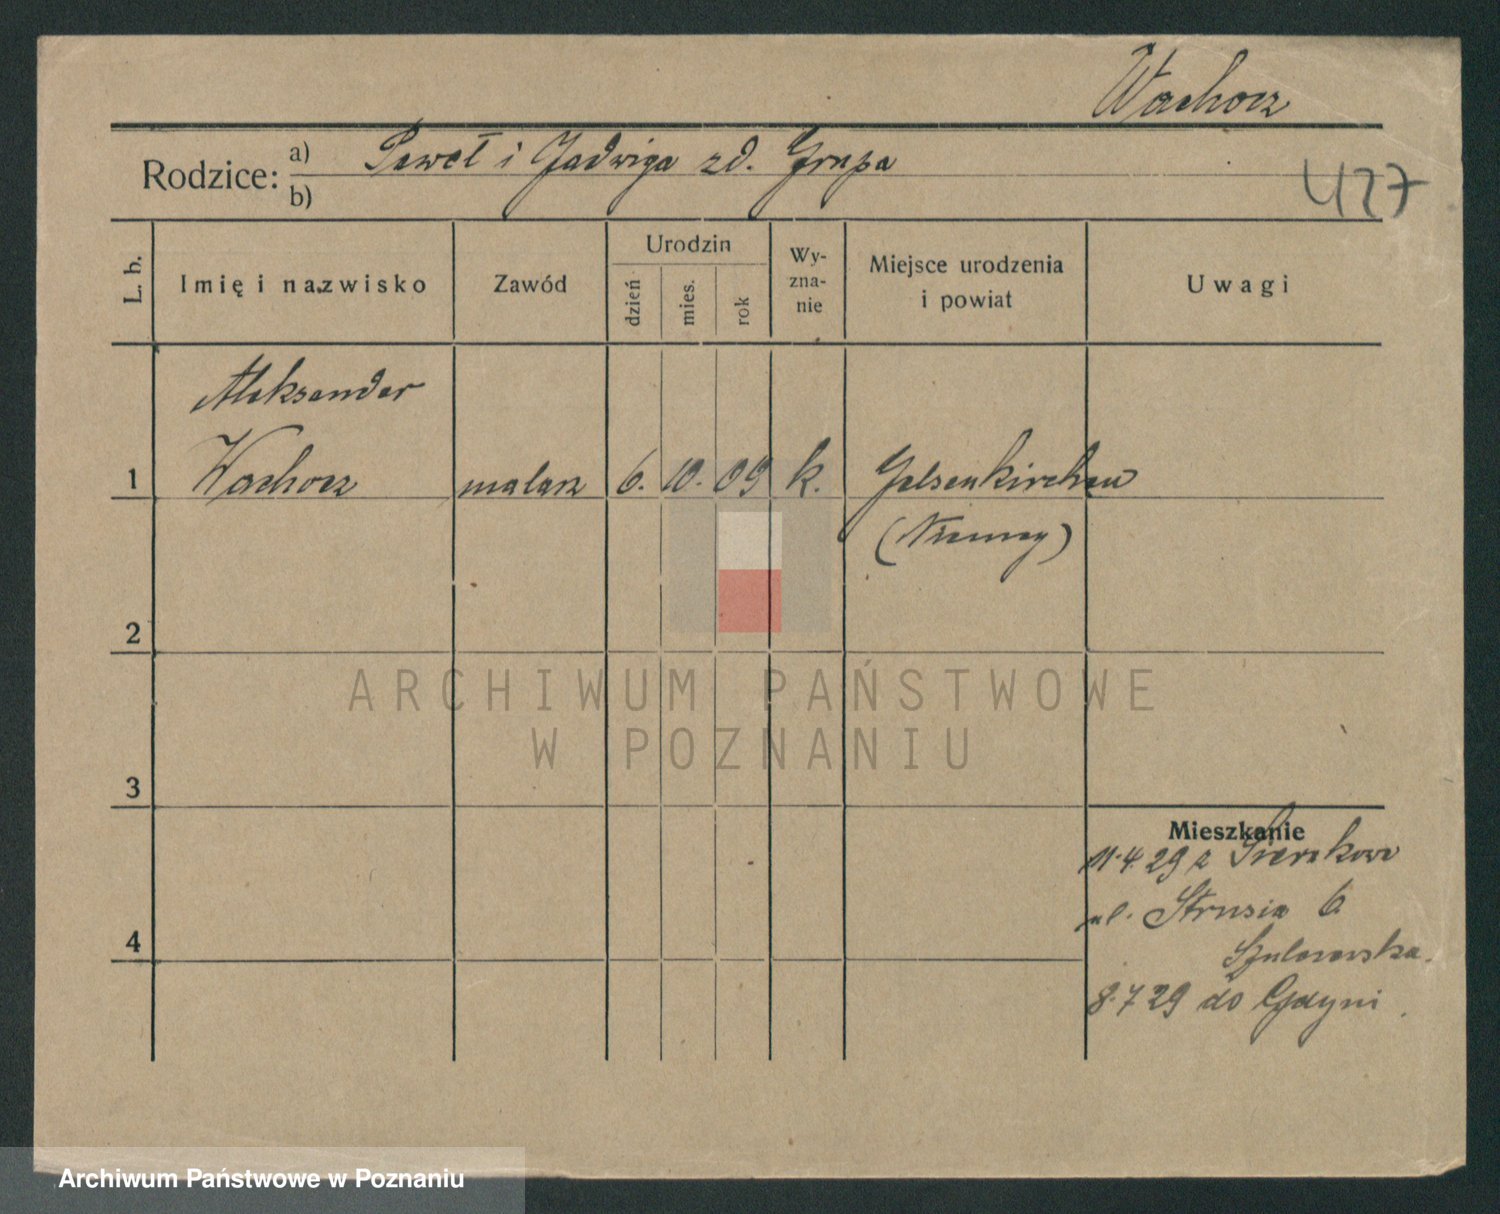 Wachocz
Rodzice: a) Paweł i Jadwiga zd. Grupa
b)
427
L. b.
Imię i nazwisko
Zawód
Urodzin
dzień
mies.
rok
Wy-
zna-
nie
Miejsce urodzenia
i powiat
Uwagi
Aleksander
1 Wachocz malarz 6. 10. 09 k. Gelsenkirchen
(Niemcy)
2
3
4
ARCHIWUM PAŃSTWOWE
W POZNANIU
Mieszkanie
11.4.29 z
ul. Strusia 6
8.7.29 do Gdyni
Archiwum Państwowe w Poznaniu